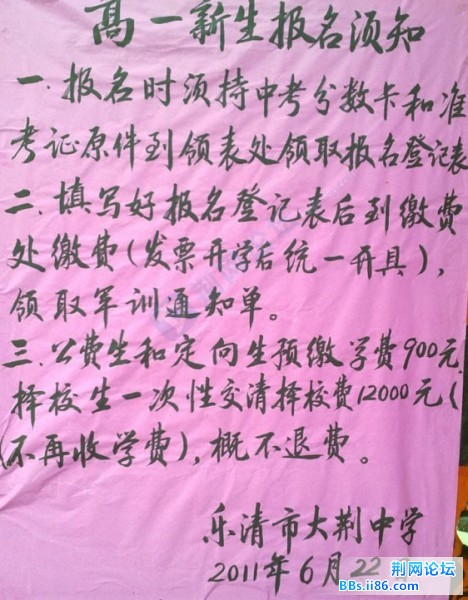 高一新生报名须知
一、报名时须持中考分数卡和准
考证原件到领表处领取报名登记表
二、填写好报名登记表后到缴费
处缴费(发票开学后统一开具),
领取军训通知单。
三、公费生和定向生预缴学费900元
择校生一次性交清择校费12000元(
(不再收学费),概不退费。
乐清市大荆中学
2011年6月22
荆网论坛
BBs.ii86.com